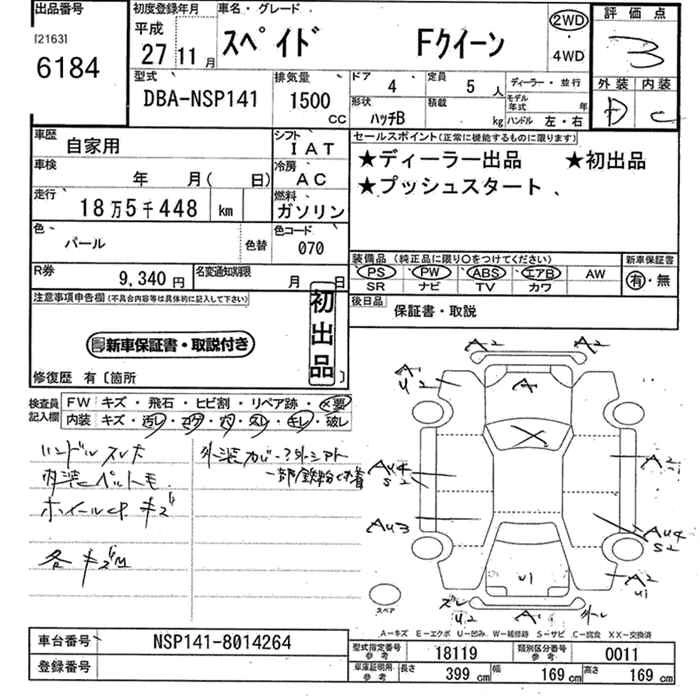 出品番号 初度登録年月 車名・グレード 評価点
[2163] 平成 スペイド Fクイーン 2WD 3
6184 27 11月 4WD 外装 内装
型式 排気量 ドア 4 定員 5人 ディーラー・並行 D C
DBA-NSP141 1500 形状 積載 モデル年式 年
CC ハッチB kg ハンドル 左・右
車歴 自家用 シフト IAT セールスポイント(正常に機能するものに限ります)
車検 年 月( 日) 冷房 AC ★ディーラー出品 ★初出品
走行 18万5千448 km 燃料 ガソリン ★プッシュスタート
色 パール 色替 色コード 070
装備品(純正品に限り〇をつけてください) 新車保証書
R券 9,340円 名変通知期限 月 日 PS PW ABS エアB AW 有・無
SR ナビ TV カワ
注意事項申告欄(不具合内容等は具体的に記入して下さい) 初出品 後日品 保証書・取説
新車保証書・取説付き
修復歴 有〔箇所 〕
検査員記入欄 FW キズ・飛石・ヒビ割・リペア跡・×要
内装 キズ・汚レ・コゲ・穴・スレ・キレ・破レ
ハンドルスレ
内装ペットモ
ホイールcp キズ
各キズ
A2 A2
A1 A A1
U2
AU4 A2
S2
AU3 AU4
S2
U1 A2
U1
ズレ A1
U2 U2
スペア
A-キズ E-エクボ U-凹み W-補修跡 S-サビ C-腐食 XX-交換済
車台番号 NSP141-8014264 型式指定番号 参考 18119 類別区分番号 参考 0011
登録番号 車庫証明用 参考 長さ 399 cm 幅 169 cm 高さ 169 cm